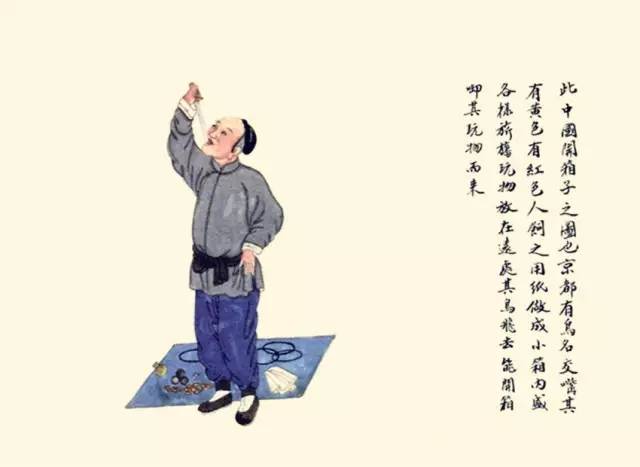 此中國開箱子之圖也京都有鳥名交嘴其
有黃色有紅色人飼之用紙做成小箱內盛
各樣旂旛玩物放在遠處其鳥飛去能開箱
啣其玩物而來